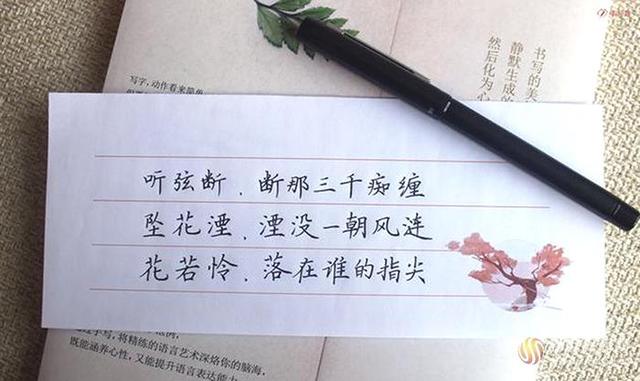 书写的美
静默生成的
然后化为心
写字，动作看来简单
听弦断，断那三千痴缠
坠花湮，湮没一朝风连
花若怜，落在谁的指尖
手写，将精练的语言艺术深烙你的脑海，
既能涵养心性，又能提升语言表达能力